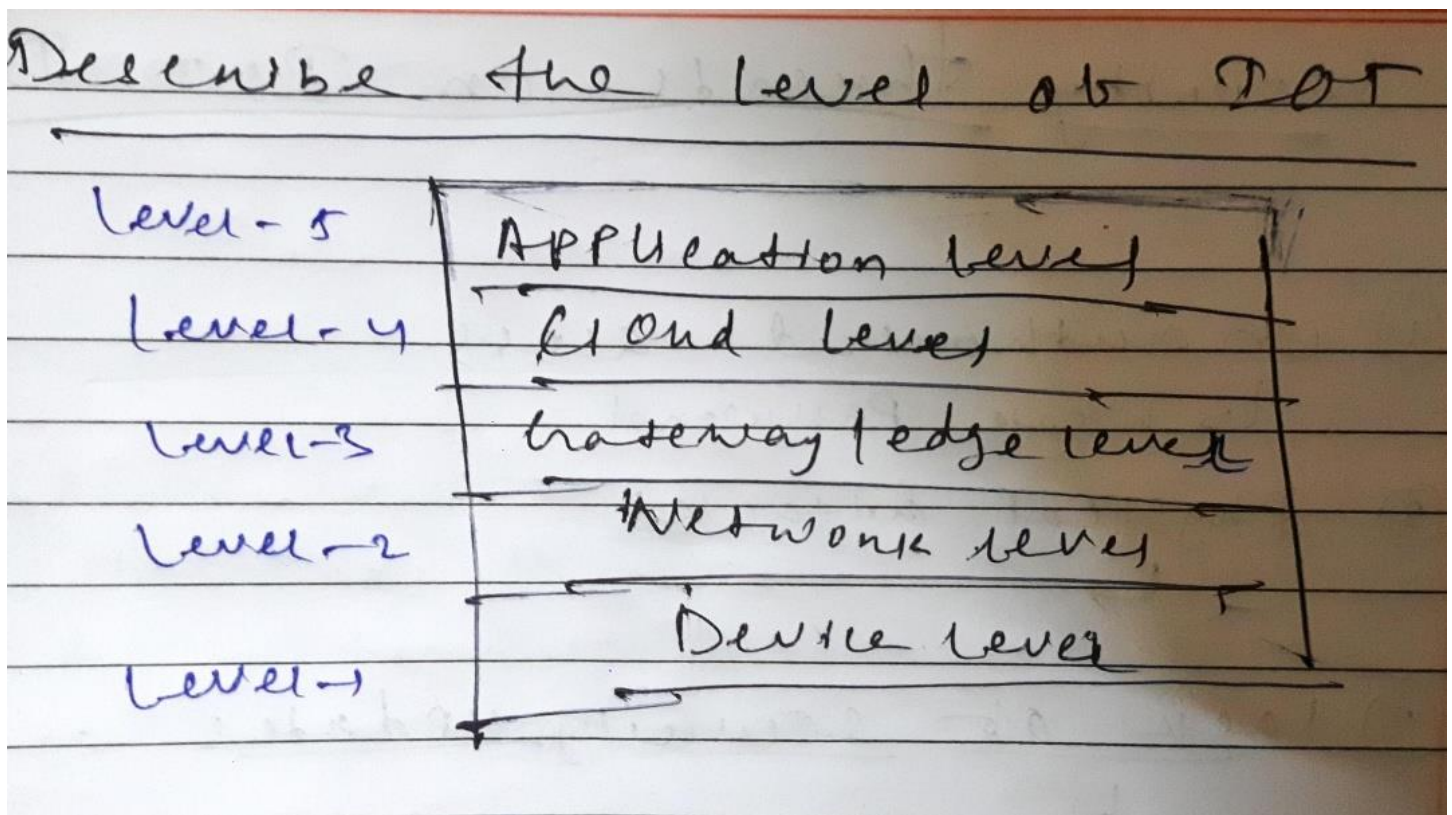 Describe the level of IOT
Level - 5 Application level
Level - 4 Cloud Level
Level-3 Gateway / edge level
Level-2 Network level
Device level
Level-1